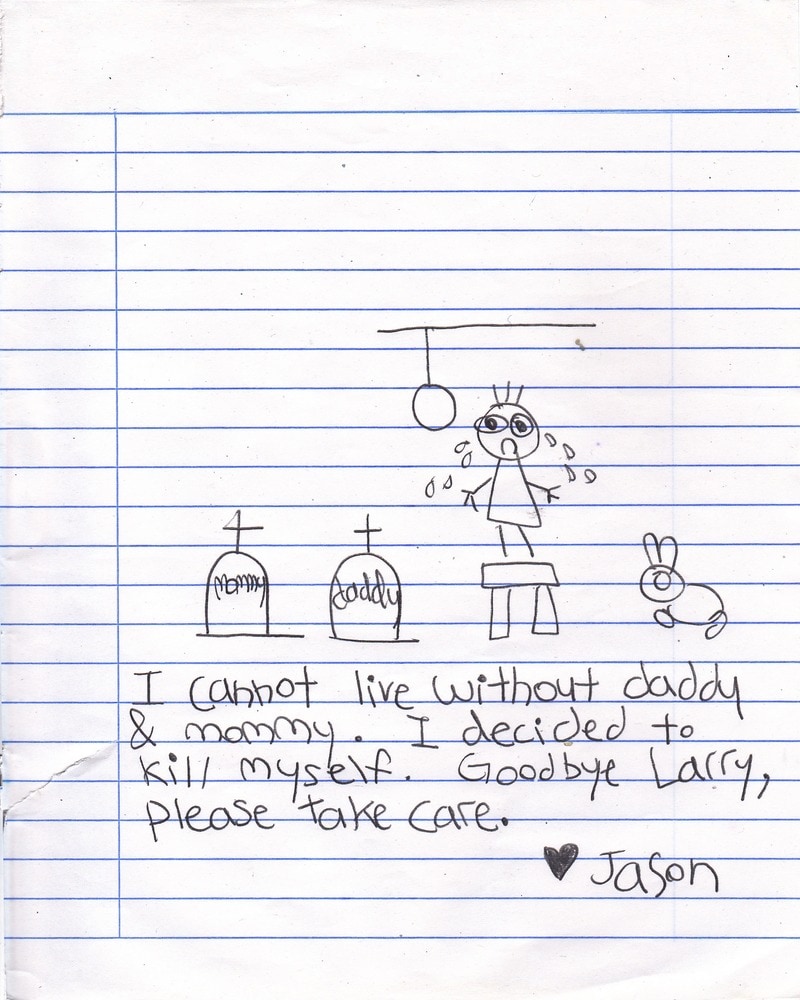 mommy
daddy
I cannot live without daddy
& mommy. I decided to
kill myself. Goodbye Larry,
please take care.
♥ Jason